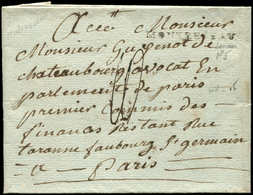 Monsieur
Monsieur Guyenot de
chateaubourg avocat En
parlement de paris
premier commis des
finances Restant Rue
taranne faubourg St germain
a
Paris